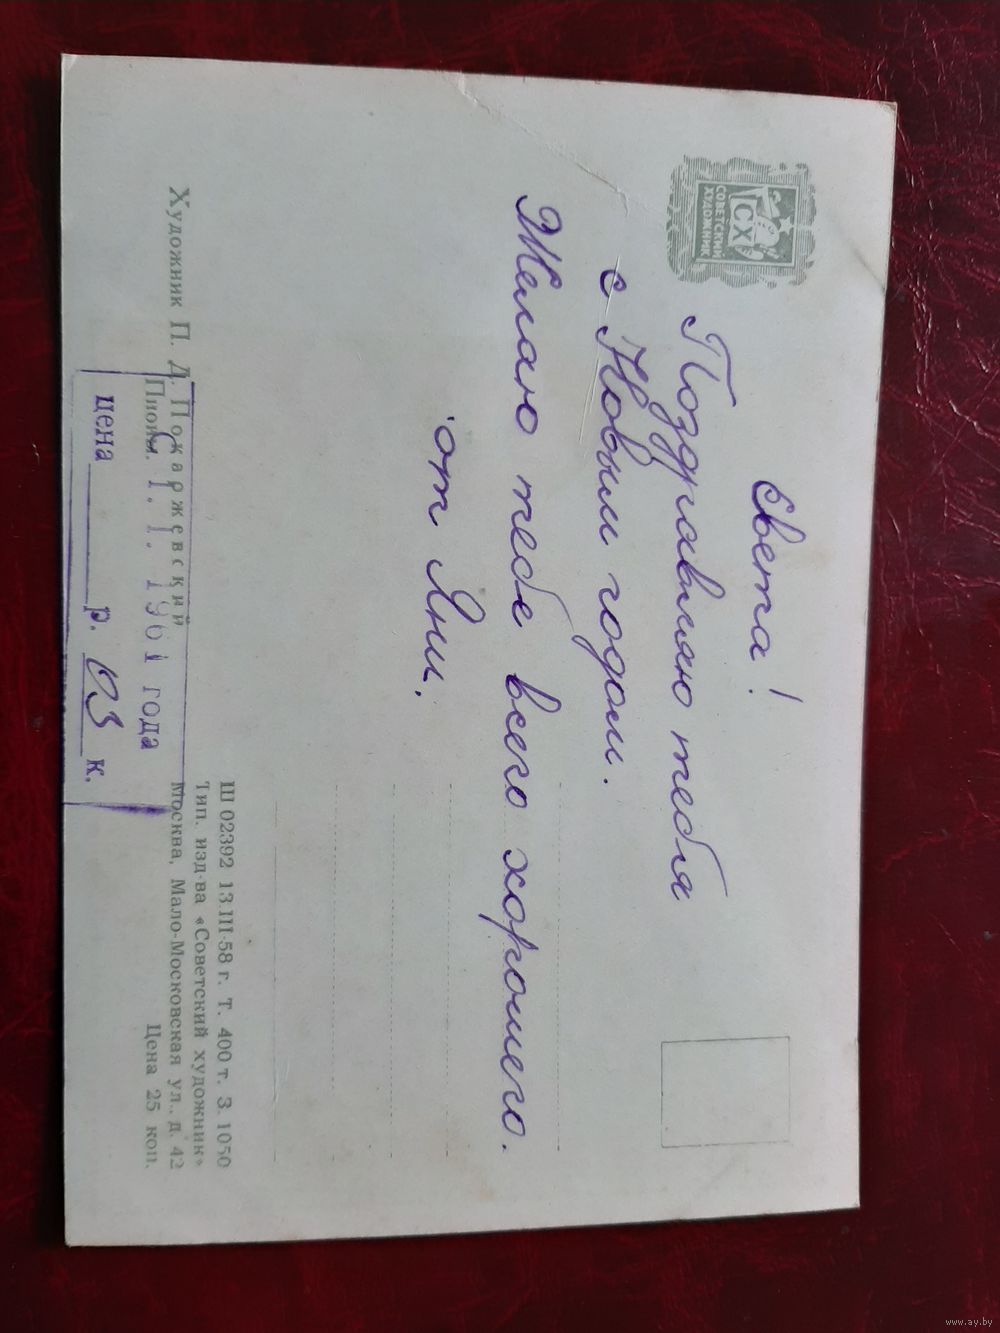 СОВЕТСКИЙ
ХУДОЖНИК
СХ
Света!
Поздравляю тебя
с Новым годом.
Желаю тебе всего хорошего.
от Яни.
Художник П. Д. Покаржевский
Пионы.
С 1. 1. 1961 года
цена р. 03 к.
Ш 02392 13.III-58 г. Т. 400 т. З. 1050
Тип. изд-ва «Советский художник»
Москва, Мало-Московская ул., д. 42
Цена 25 коп.
www.ay.by